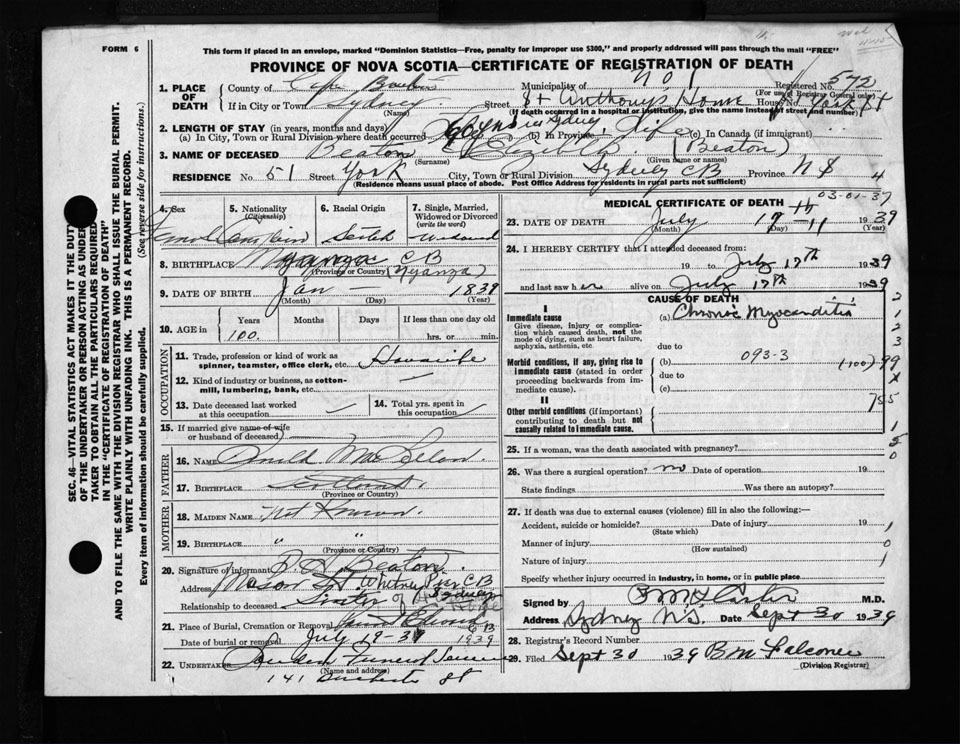 FORM 6
This form if placed in an envelope, marked "Dominion Statistics—Free, penalty for improper use $300," and properly addressed will pass through the mail "FREE"
PROVINCE OF NOVA SCOTIA—CERTIFICATE OF REGISTRATION OF DEATH
1. PLACE OF DEATH
County of Cape Breton Municipality of No 1 Registered No. 572
(For use of Registrar General only)
If in City or Town Sydney Street St Anthonys Home House No. York St
(Name) (If death occurred in a hospital or institution, give the name instead of street and number)
2. LENGTH OF STAY (in years, months and days)
(a) In City, Town or Rural Division where death occurred in Sydney (b) In Province Life (c) In Canada (if immigrant)
3. NAME OF DECEASED Beaton (Beaton)
(Surname) (Given name or names)
RESIDENCE No 51 Street York City, Town or Rural Division Sydney CB Province NS 4
(Residence means usual place of abode. Post Office Address for residents in rural parts not sufficient)
SEC. 46—VITAL STATISTICS ACT MAKES IT THE DUTY
OF THE UNDERTAKER OR PERSON ACTING AS UNDER
TAKER TO OBTAIN ALL THE PARTICULARS REQUIRED
IN THE "CERTIFICATE OF REGISTRATION OF DEATH"
AND TO FILE THE SAME WITH THE DIVISION REGISTRAR WHO SHALL ISSUE THE BURIAL PERMIT.
WRITE PLAINLY WITH UNFADING INK. THIS IS A PERMANENT RECORD.
Every item of information should be carefully supplied. (See reverse side for instructions.)
4. Sex 5. Nationality (Citizenship) 6. Racial Origin 7. Single, Married, Widowed or Divorced (write the word)
Scotch Widowed
8. BIRTHPLACE Nyanza CB
(Province or Country) (Nyanza)
9. DATE OF BIRTH Jan — 1839
(Month) (Day) (Year)
10. AGE in Years Months Days If less than one day
100. hrs. or min.
OCCUPATION
11. Trade, profession or kind of work as spinner, teamster, office clerk, etc. Housewife
12. Kind of industry or business, as cotton-mill, lumbering, bank, etc. —
13. Date deceased last worked at this occupation 14. Total yrs. spent in this occupation
15. If married give name of wife or husband of deceased
FATHER
16. NAME Donald McLellan
17. BIRTHPLACE Scotland.
(Province or Country)
MOTHER
18. MAIDEN NAME Not Known.
19. BIRTHPLACE " "
(Province or Country)
20. Signature of informant Beaton.
Address Whitney Pier CB
Relationship to deceased
21. Place of Burial, Cremation or Removal
Date of burial or removal July 19-39 1939
22. UNDERTAKER Funeral Service
(Name and address)
141 St
MEDICAL CERTIFICATE OF DEATH 03-01-37
23. DATE OF DEATH July 17th 1939
(Month) (Day) (Year)
24. I HEREBY CERTIFY that I attended deceased from:
19 to July 17th 1939
and last saw her alive on July 17th 1939
CAUSE OF DEATH
Immediate cause (a) Chronic Myocarditis
Give disease, injury or complication which caused death, not the mode of dying, such as heart failure, asphyxia, asthenia, etc.
due to
Morbid conditions, if any, giving rise to immediate cause (stated in order proceeding backwards from immediate cause). (b) 093-3
due to
(c)
II
Other morbid conditions (if important) contributing to death but not causally related to immediate cause.
(100) 99
755
25. If a woman, was the death associated with pregnancy?
26. Was there a surgical operation? no Date of operation 19
State findings Was there an autopsy?
27. If death was due to external causes (violence) fill in also the following:—
Accident, suicide or homicide? Date of injury 19
(State which)
Manner of injury 0
(How sustained)
Nature of injury 1
Specify whether injury occurred in industry, in home, or in public place
Signed by M.D.
Address Sydney N.S. Date Sept 30 1939
28. Registrar's Record Number
29. Filed Sept 30 1939 B M Falconer
(Division Registrar)